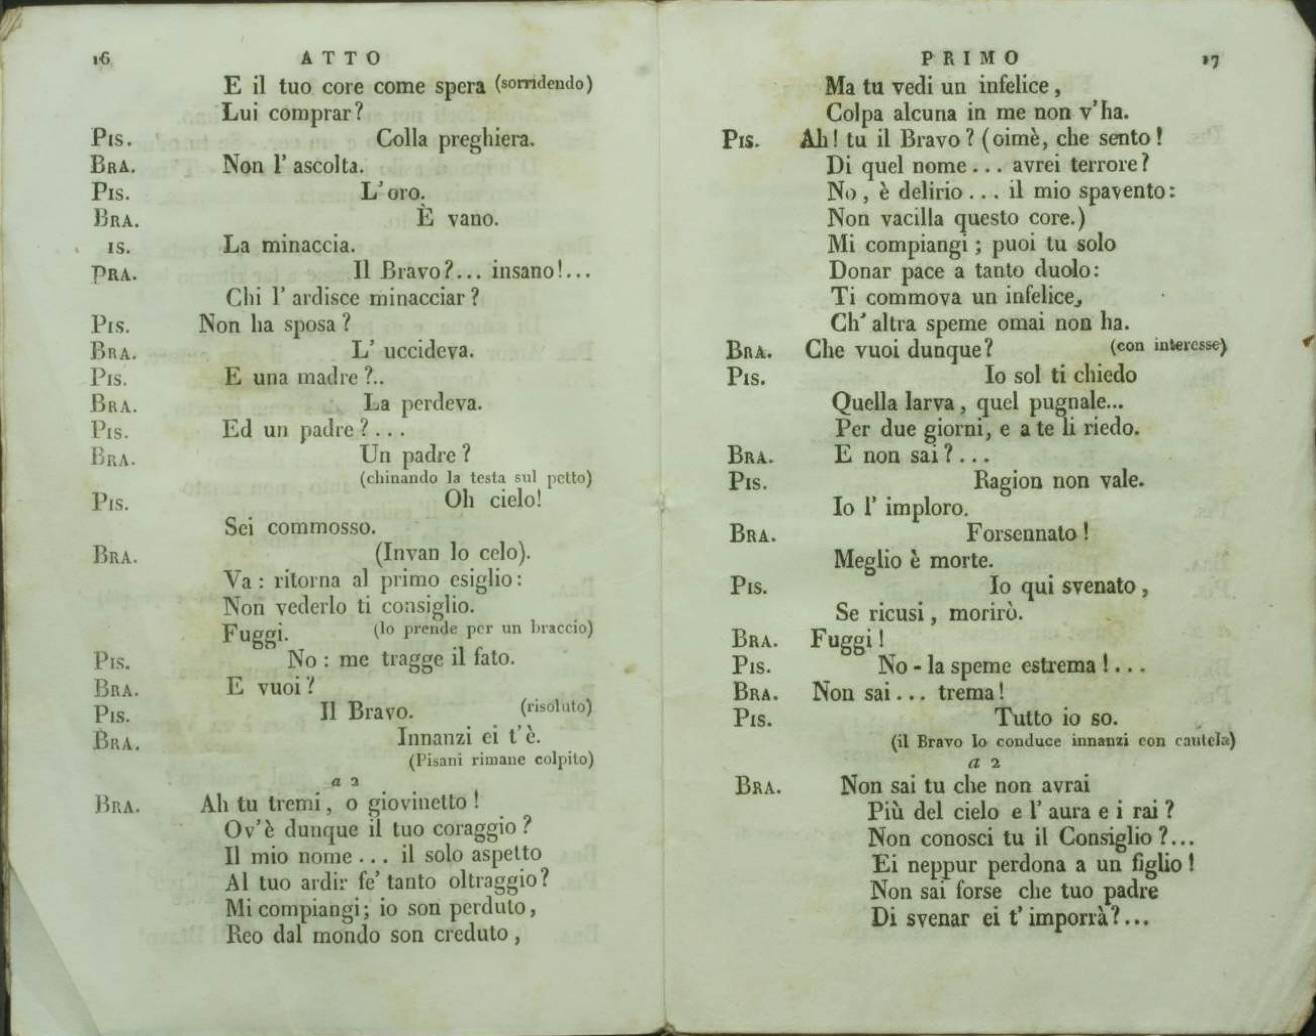 16 ATTO
E il tuo core come spera (sorridendo)
Lui comprar?
PIS. Colla preghiera.
BRA. Non l' ascolta.
PIS. L'oro.
BRA. È vano.
IS. La minaccia.
PRA. Il Bravo?... insano!...
Chi l' ardisce minacciar?
PIS. Non ha sposa?
BRA. L' uccideva.
PIS. E una madre?..
BRA. La perdeva.
PIS. Ed un padre?...
BRA. Un padre?
(chinando la testa sul petto)
PIS. Oh cielo!
Sei commosso.
BRA. (Invan lo celo).
Va: ritorna al primo esiglio:
Non vederlo ti consiglio.
Fuggi. (lo prende per un braccio)
PIS. No: me tragge il fato.
BRA. E vuoi?
PIS. Il Bravo. (risoluto)
BRA. Innanzi ei t'è.
(Pisani rimane colpito)
a 2
BRA. Ah tu tremi, o giovinetto!
Ov'è dunque il tuo coraggio?
Il mio nome... il solo aspetto
Al tuo ardir fe' tanto oltraggio?
Mi compiangi; io son perduto,
Reo dal mondo son creduto,
PRIMO 17
Ma tu vedi un infelice,
Colpa alcuna in me non v'ha.
PIS. Ah! tu il Bravo? (oimè, che sento!
Di quel nome... avrei terrore?
No, è delirio... il mio spavento:
Non vacilla questo core.)
Mi compiangi; puoi tu solo
Donar pace a tanto duolo:
Ti commova un infelice,
Ch' altra speme omai non ha.
BRA. Che vuoi dunque? (con interesse)
PIS. Io sol ti chiedo
Quella larva, quel pugnale...
Per due giorni, e a te li riedo.
BRA. E non sai?...
PIS. Ragion non vale.
Io l' imploro.
BRA. Forsennato!
Meglio è morte.
PIS. Io qui svenato,
Se ricusi, morirò.
BRA. Fuggi!
PIS. No - la speme estrema!...
BRA. Non sai... trema!
PIS. Tutto io so.
(il Bravo lo conduce innanzi con cautela)
a 2
BRA. Non sai tu che non avrai
Più del cielo e l' aura e i rai?
Non conosci tu il Consiglio?...
Ei neppur perdona a un figlio!
Non sai forse che tuo padre
Di svenar ei t' imporrà?...